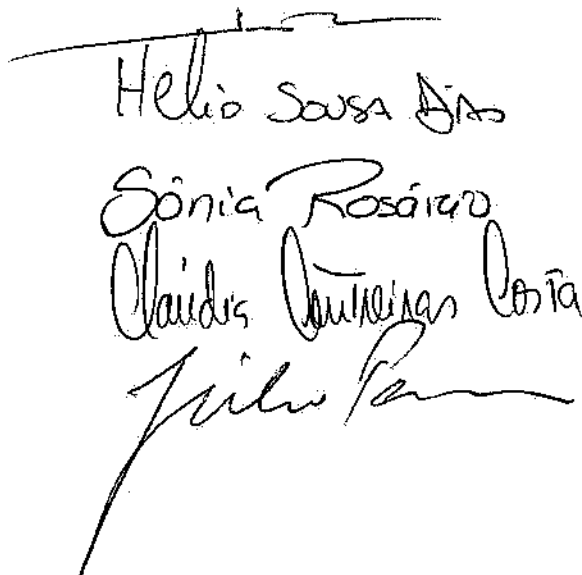 Helio Sousa Dias
Sónia Rosário
Claúdia Contreiras Costa
Júlio